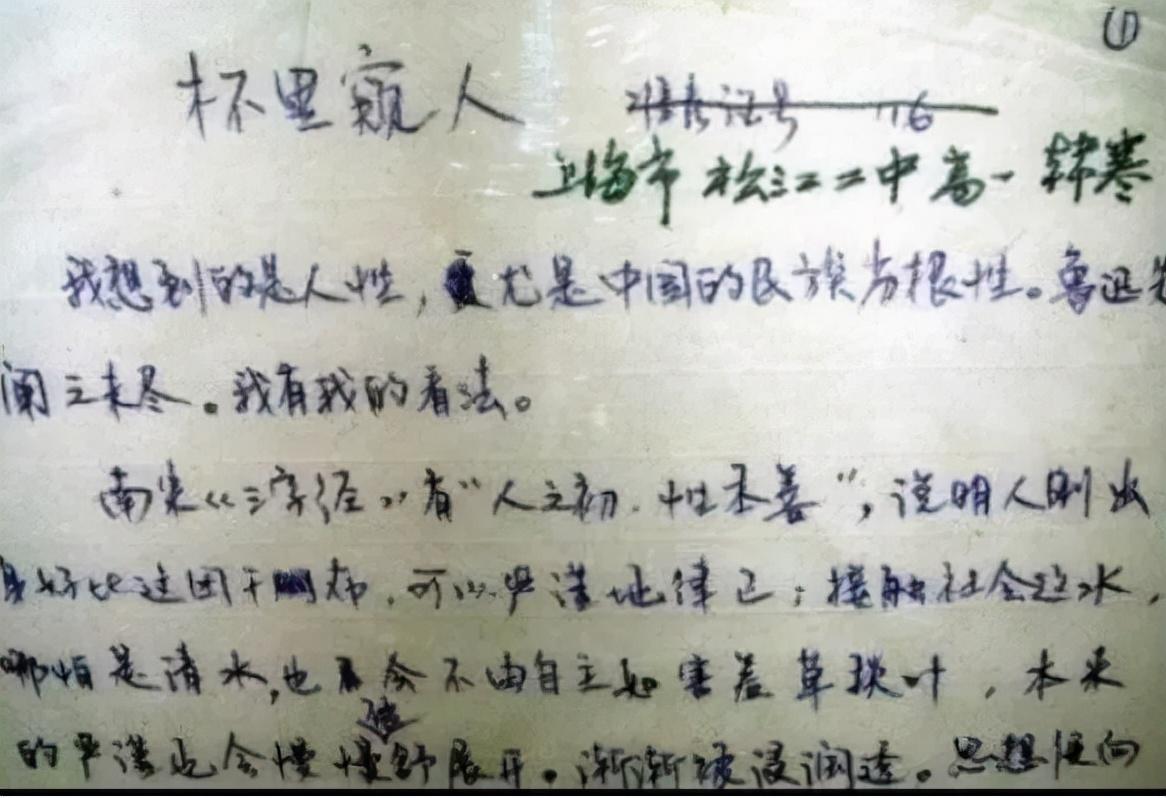 ①
杯里窥人
准考证号
上海市松江二中高一 韩寒
我想到的是人性,尤是中国的民族劣根性。鲁迅先
阐之未尽。我有我的看法。
南宋《三字经》有“人之初,性本善”,说明人刚出
好比这团干布,可以严谨地律己;接触社会这水,
哪怕是清水,也会不由自主如害羞草叶,本来
的严谨也会慢慢舒展开。渐渐被浸润透。思想便向